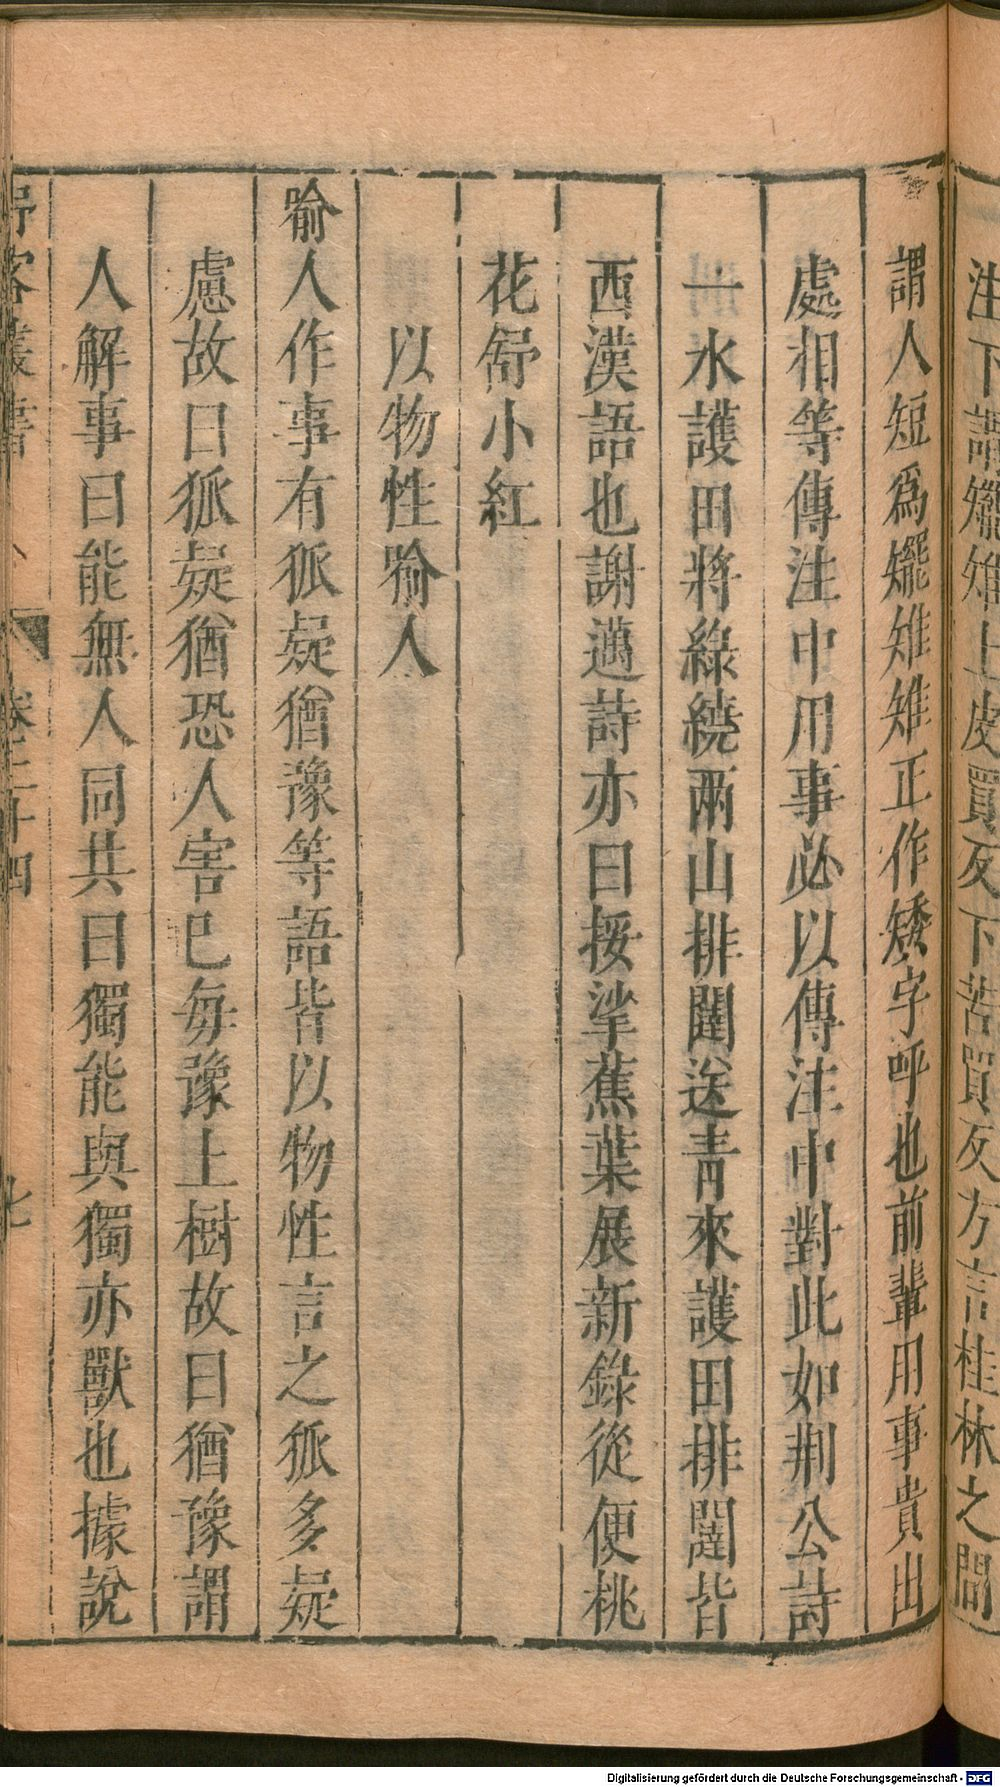 注下謂矲雉上皮買反下苦買反方言桂林之間
謂人短為矲雉雉正作矮字呼也前輩用事貴出
處相等傳注中用事必以傳注中對此如荆公詩
一水護田將綠繞兩山排闥送青來護田排闥皆
西漢語也謝邁詩亦曰挼挲蕉葉展新錄從便桃
花舒小紅
以物性喻人
喻人作事有狐疑猶豫等語皆以物性言之狐多疑
慮故曰狐疑猶恐人害已每豫上樹故曰猶豫謂
人解事曰能無人同共曰獨能與獨亦獸也據說
野客叢書 卷二十四 七
Digitalisierung gefördert durch die Deutsche Forschungsgemeinschaft - DFG